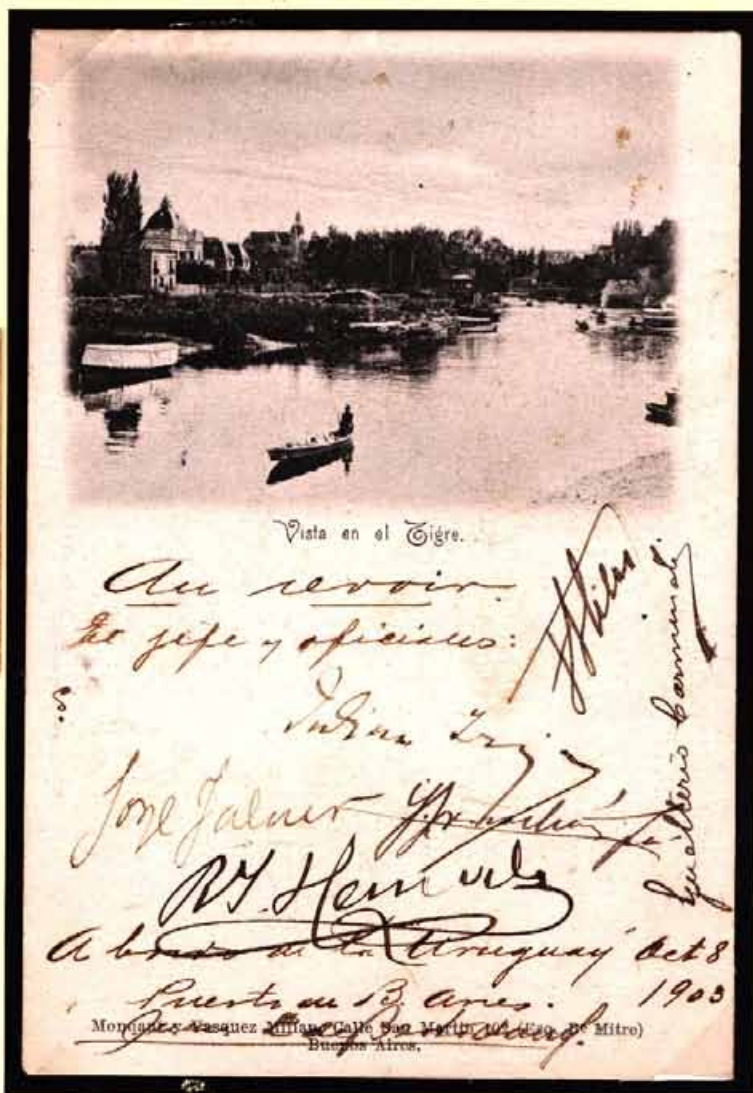 Vista en el Tigre.
Au revoir.
El jefe y oficiales:
Julian Irizar
Jorge Yalour
R. J. Hermelo
Gualterio Carminati
A bordo de la Uruguay Oct 8
1903
Puerto de B. Aires.
Monqaut y Vasquez Millan, Calle San Martin (Esq. Bé Mitre)
Buenos Aires.